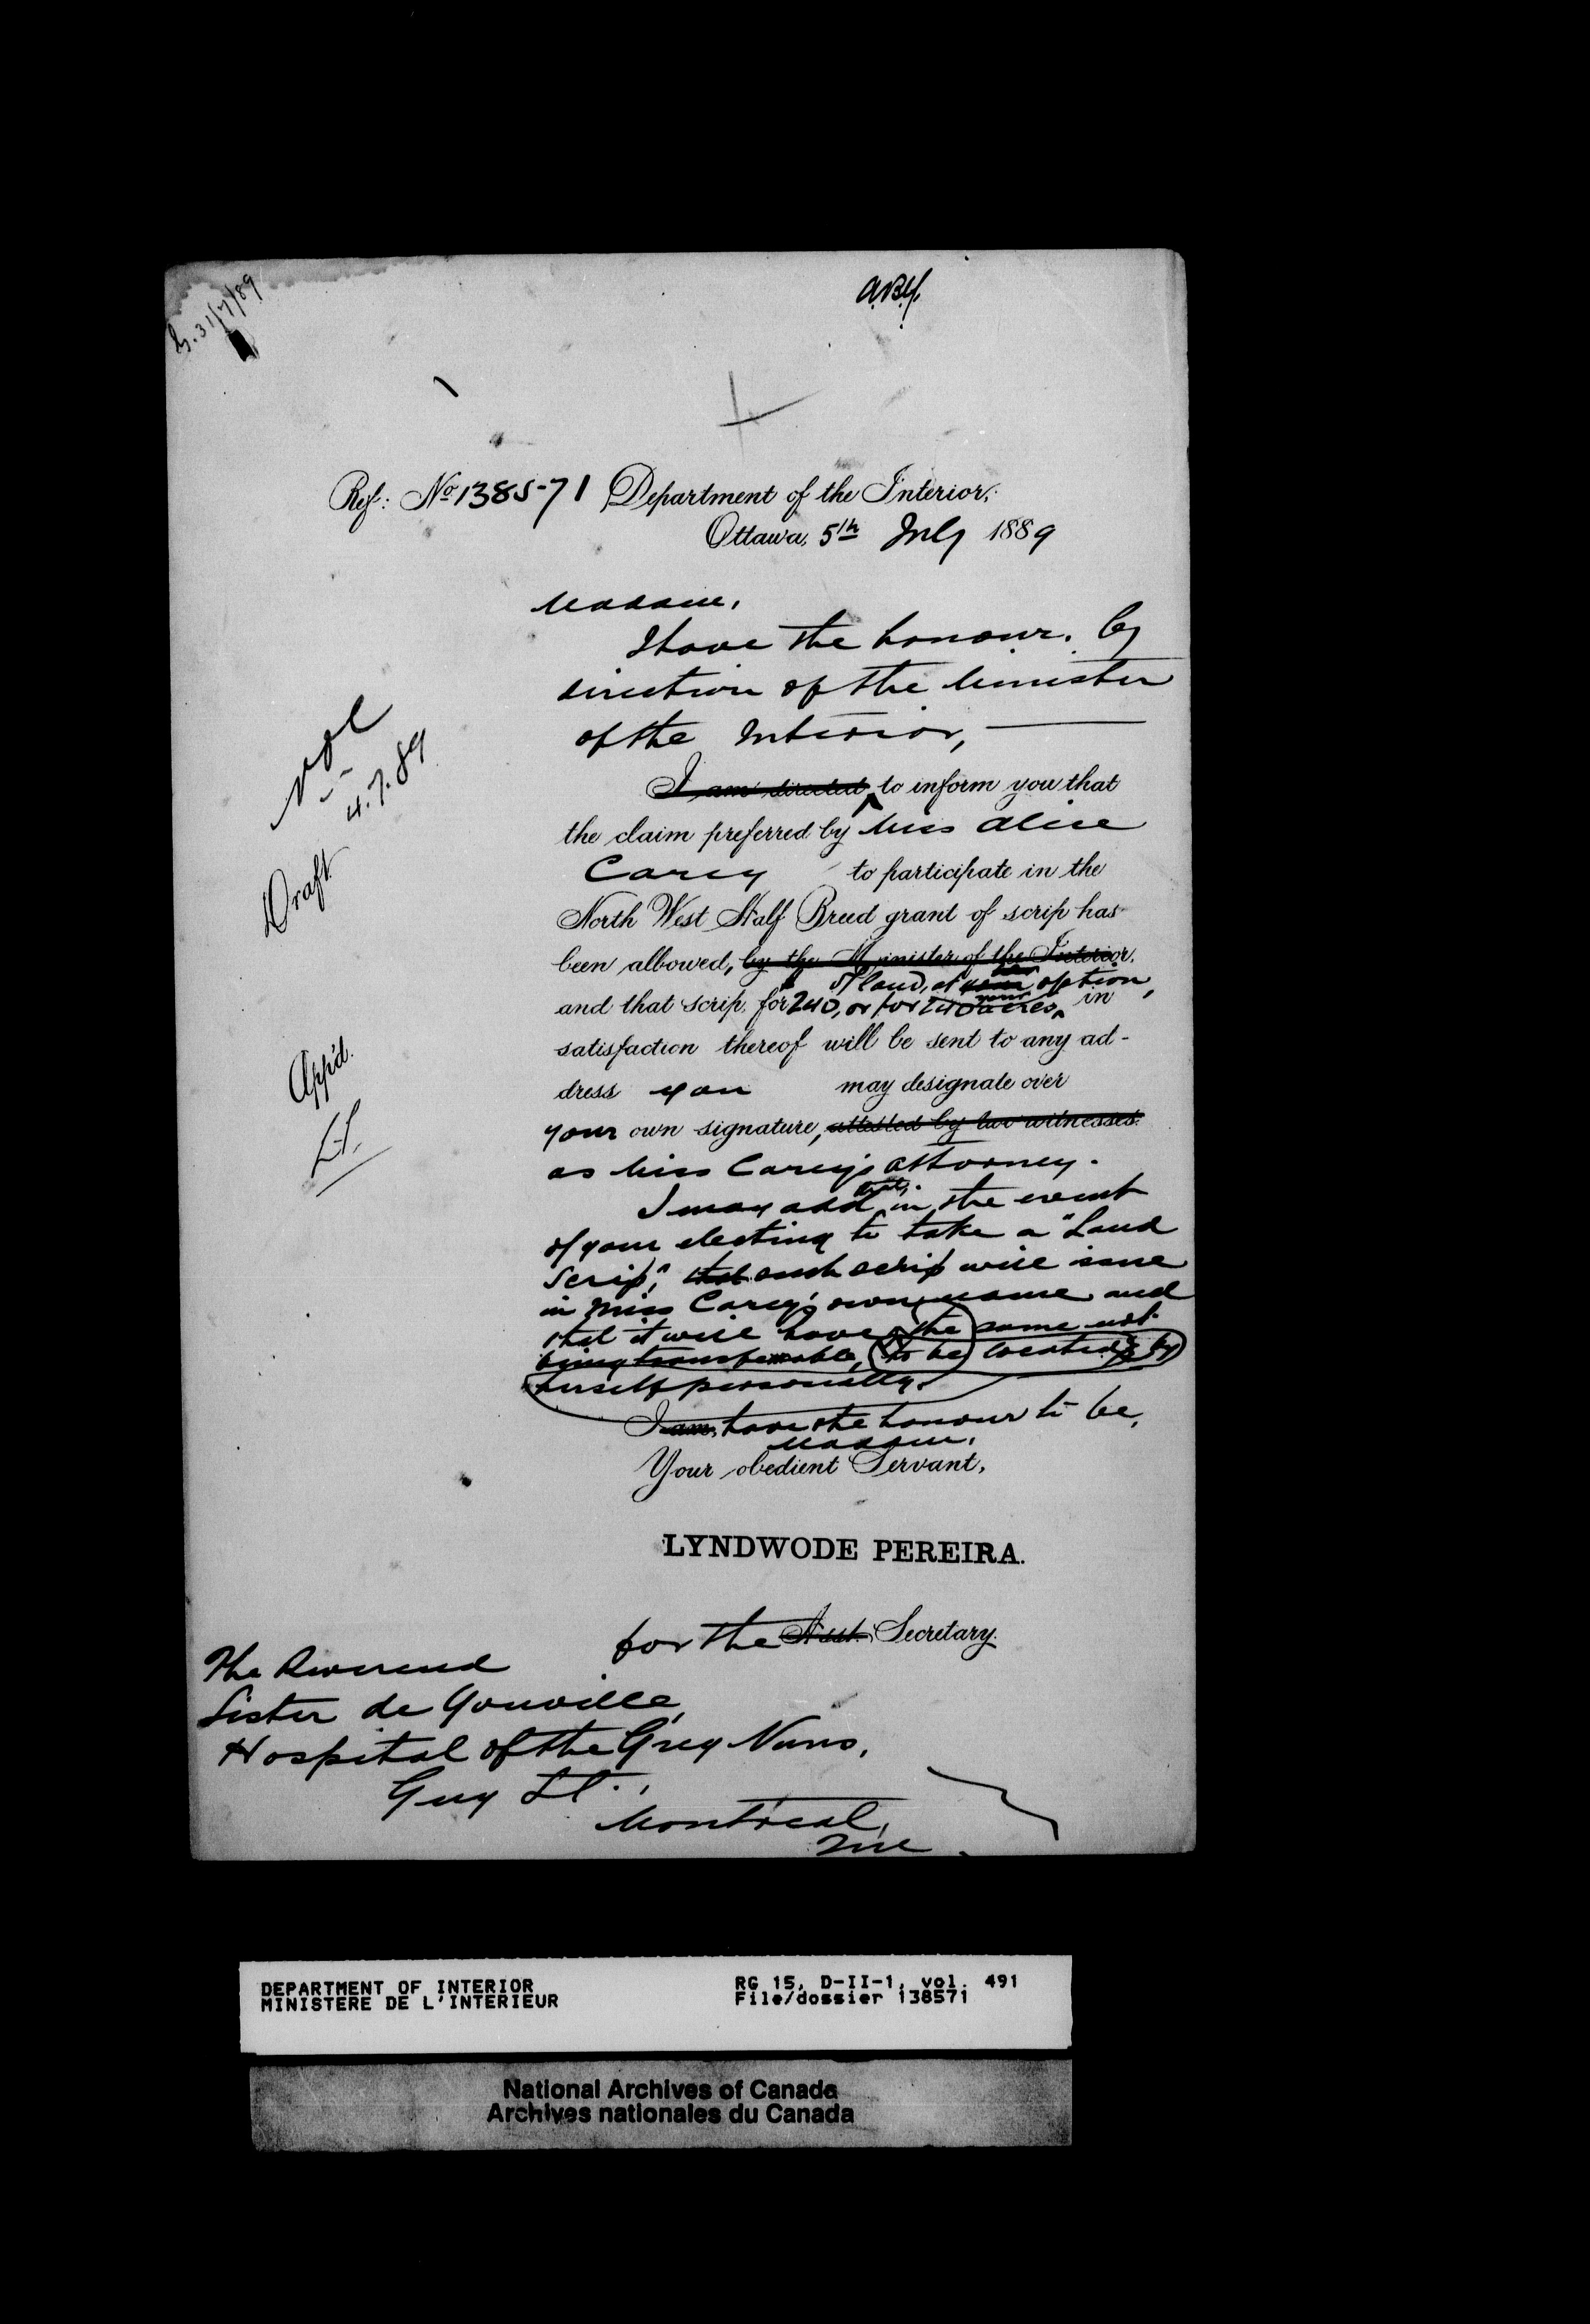 31/7/89
Ref: No 138571 Department of the Interior,
Ottawa, 5th July 1889
Madam,
I have the honour, by
direction of the Minister
of the Interior,
4.7.89
Draft
App'd.
I am directed to inform you that
the claim preferred by Miss Alice
Carey to participate in the
North West Half Breed grant of scrip has
been allowed, by the Minister of the Interior,
of land, at her option,
and that scrip for 240, or for 240 acres, in
satisfaction thereof will be sent to any ad-
dress you may designate over
your own signature, attested by two witnesses.
as Miss Carey's attorney.
I may add that, in the event
of your electing to take a "Land
Scrip", that such scrip will issue
in Miss Carey's own name and
that it will have the same not
being transferable, to be located by
herself personally.
I am have the honour to be,
Madam,
Your obedient Servant,
LYNDWODE PEREIRA.
for the Asst. Secretary.
The Reverend
Sister de Youville,
Hospital of the Grey Nuns,
Guy St.,
Montreal,
Que
DEPARTMENT OF INTERIOR RG 15, D-II-1, vol. 491
MINISTERE DE L'INTERIEUR File/dossier 138571
National Archives of Canada
Archives nationales du Canada